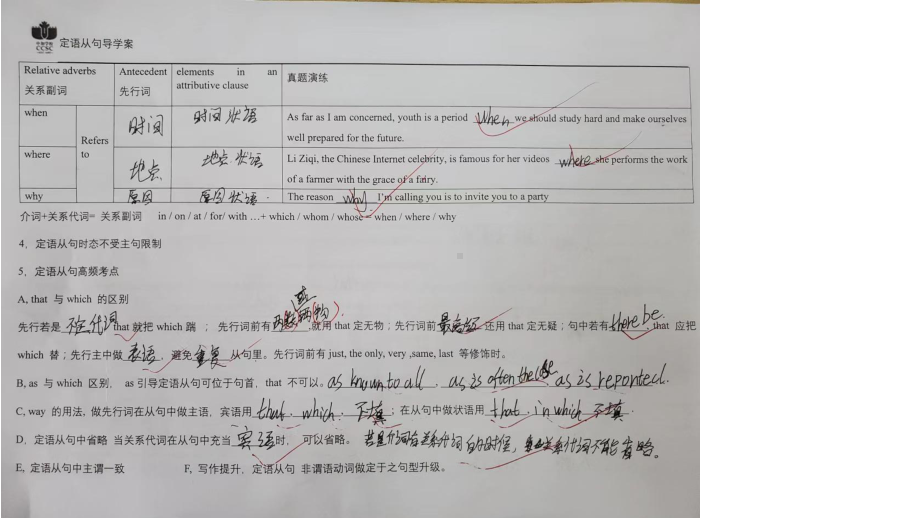 CCSC 定语从句导学案
Relative adverbs Antecedent elements in an 真题演练
关系副词 先行词 attributive clause
when 时间 时间状语 As far as I am concerned, youth is a period when we should study hard and make ourselves
Refers well prepared for the future.
where to 地点 地点状语 Li Ziqi, the Chinese Internet celebrity, is famous for her videos where she performs the work
of a farmer with the grace of a fairy.
why 原因 原因状语 The reason why I'm calling you is to invite you to a party
介词+关系代词= 关系副词 in / on / at / for/ with …+ which / whom / whose = when / where / why
4，定语从句时态不受主句限制
5，定语从句高频考点
A, that 与 which 的区别
先行若是 不定代词 that 就把 which 踹 ； 先行词前有 ,就用 that 定无物；先行词前 最高级 还用 that 定无疑；句中若有 there be , that 应把
which 替；先行主中做 表语 ，避免 重复 从句里。先行词前有 just, the only, very ,same, last 等修饰时。
B, as 与 which 区别， as 引导定语从句可位于句首，that 不可以。as known to all , as is often the case as is reported.
C, way 的用法, 做先行词在从句中做主语，宾语用 that . which . 不填 ；在从句中做状语用 that . in which 不填
D，定语从句中省略 当关系代词在从句中充当 宾语 时， 可以省略。 的时候, 关系代词不能省略。
E, 定语从句中主谓一致 F, 写作提升，定语从句 非谓语动词做定于之句型升级。